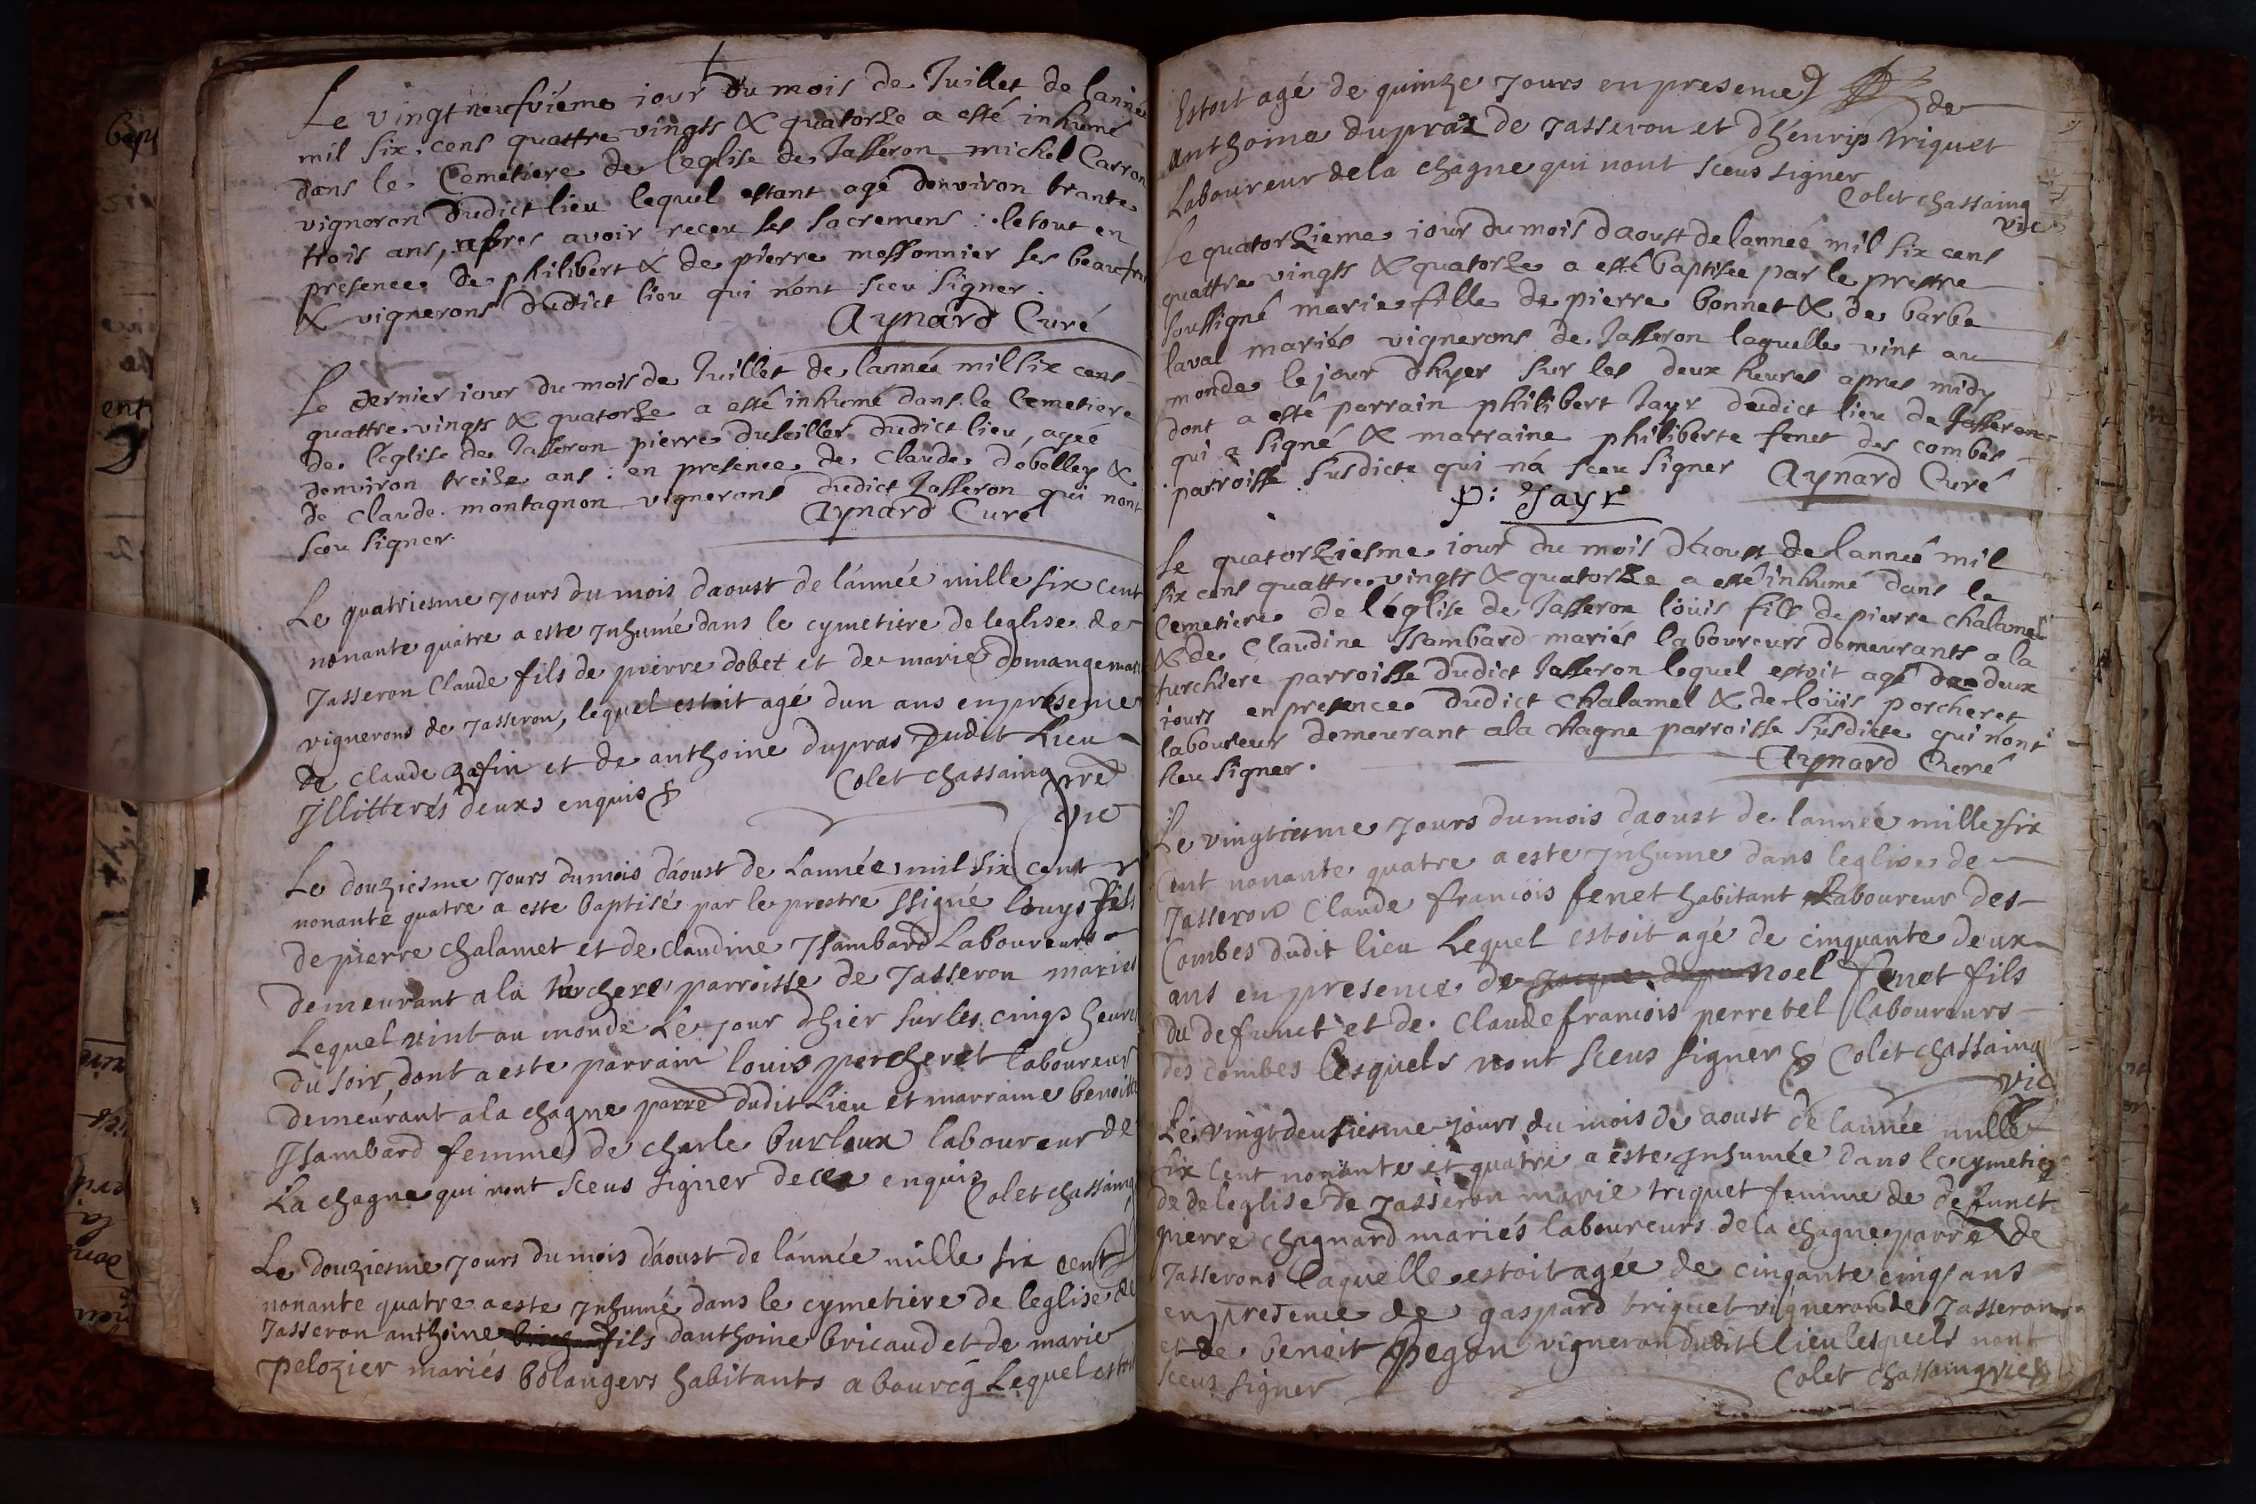 Le vingt neufviéme iour du mois de Juillet de lannée
mil six cens quattre vingts & quatorze a esté inhumé
dans le Cemetiere de leglise de Jasseron michel Carron
vigneron dudict lieu lequel estant agé denviron trante
trois ans, apres avoir receu ses sacremens : le tout en
presence de philibert & de pierre messonnier ses beaufre
& vignerons dudict lieu qui n'ont sceu signer.
Aynard Curé
Le dernier iour du mois de Juillet de lannée mil six cens
quattre vingts & quatorze a esté inhumé dans le Cemetiere
de l'eglise de Jasseron pierre duseiller dudict lieu, agéé
denviron treize ans : en presence de Claude debelley &
de Claude montagnon vignerons dudict Jasseron qui nont
sceu signer.
Aynard Curé
Le quatriesme Jours du mois daoust de l'année mille six cent
nonante quatre a este Inhumé dans le cymetiere de leglise de
Jasseron Claude fils de pierre dobet et de marie domange mari
vignerons de Jasseron, lequel estoit agé dun ans en presence
de Claude gafin et de anthoine dupras dudit Lieu
Illitterés deux enquis &
Colet chassaing prê
vic
Le douziesme Jours du mois d'aoust de Lannée mil six cent
nonante quatre a este baptisé par le prestre ssigné louys fils
de pierre chalamet et de claudine Isambard Laboureurs
demeurant a la turchere parroisse de Jasseron mariés
Lequel vint au monde Le jour dhier sur les cinqs heures
du soir, dont a este parrain louis porcheret laboureur
demeurant a la chagne parrê dudit Lieu et marraine benoitte
Isambard femme de charle burloux laboureur de
La chagne qui nont sceus signer de ce enquis
Colet chassaing
Le douziesme Jours du mois d'aoust de l'année mille six cent
nonante quatre a este Inhumé dans le cymetiere de leglise de
Jasseron anthoine fils danthoine bricaud et de marie
pelozier mariés bolangers habitants a bourcg Lequel estoit
Estoit agé de quinze Jours en presence de
anthoine dupraz de Jasseron et d'henrip triquet
Laboureur de la chagne qui nont sceus signer
Colet chassaing
vic
Le quatorzieme iour du mois daoust de lanneé mil six cens
quattre vingts & quatorze a esté baptisée par le prestre
soussigné marie fille de pierre bonnet & de barbe
laval mariés vignerons de Jasseron laquelle vint au
monde le jour d'hyer sur les deux heures apres midy
dont a esté parrain philibert Jayr dudict lieu de Jasseron
qui a signé & marraine philiberte fenet des combes
parroisse susdicte qui n'a sceu signer
Aynard Curé
p: Jayr
Le quatorziesme iour du mois d'aoust de lanneé mil
six cens quattre vingts & quatorze a esté inhumé dans le
Cemetiere de l'église de Jasseron loüis fils de pierre chalamel
& de Claudine Isambard mariés laboureurs demeurants a la
turchiere parroisse dudict Jasseron lequel estoit agé de deux
iours en presence dudict chalamel & de loüis porcheret
laboureur demeurant a la chagne parroisse susdicte qui n'ont
sceu signer.
Aynard Curé
Le vingtiesme Jours du mois daoust de lannée mille six
Cent nonante quatre a este Inhume dans leglise de
Jasseron Claude francois fenet habitant Laboureur des
Combes dudit lieu Lequel estoit agé de cinquante deux
ans en presence de noel fenet fils
du defunct et de Claude francois perretel laboureurs
des combes lesquels nont sceus signer & Colet chassaing
vic
Le vingtdeusiesme jours du mois de aoust de lannée mille
six Cent nonante et quatre a este Inhumée dans le cymetie
de de leglise de Jasseron marie triquet femme de defunct
pierre chagnard mariés laboureurs de la chagne parrê de
Jasserons laquelle estoit agée de cinqante cinqs ans
en presence de gaspard triquet vigneron de Jasseron
et de benoit pegon vigneron dudit lieu lesquels nont
sceus signer
Colet chassaing vic